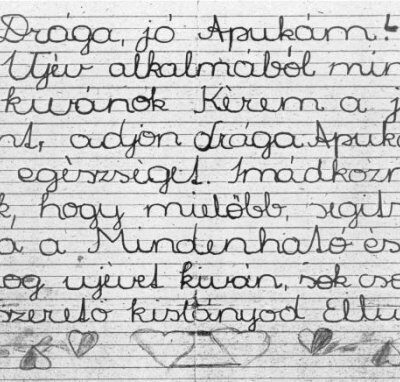 Drága, jó Apukám!
Ujév alkalmából min
kivánok Kérem a j
nt, adjon drága Apuk
egészséget. Imádkozn
k, hogy mielőbb, segits
a a Mindenható és
og ujévet kiván, sok cso
szerető kislányod